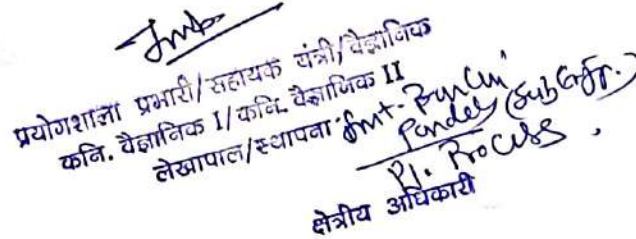 प्रयोगशाला प्रभारी/सहायक यंत्री/वैज्ञानिक
कनि. वैज्ञानिक I/कनि. वैज्ञानिक II
लेखापाल/स्थापना Smt. Pandey (Sub Engr.)
Pl. Process
क्षेत्रीय अधिकारी